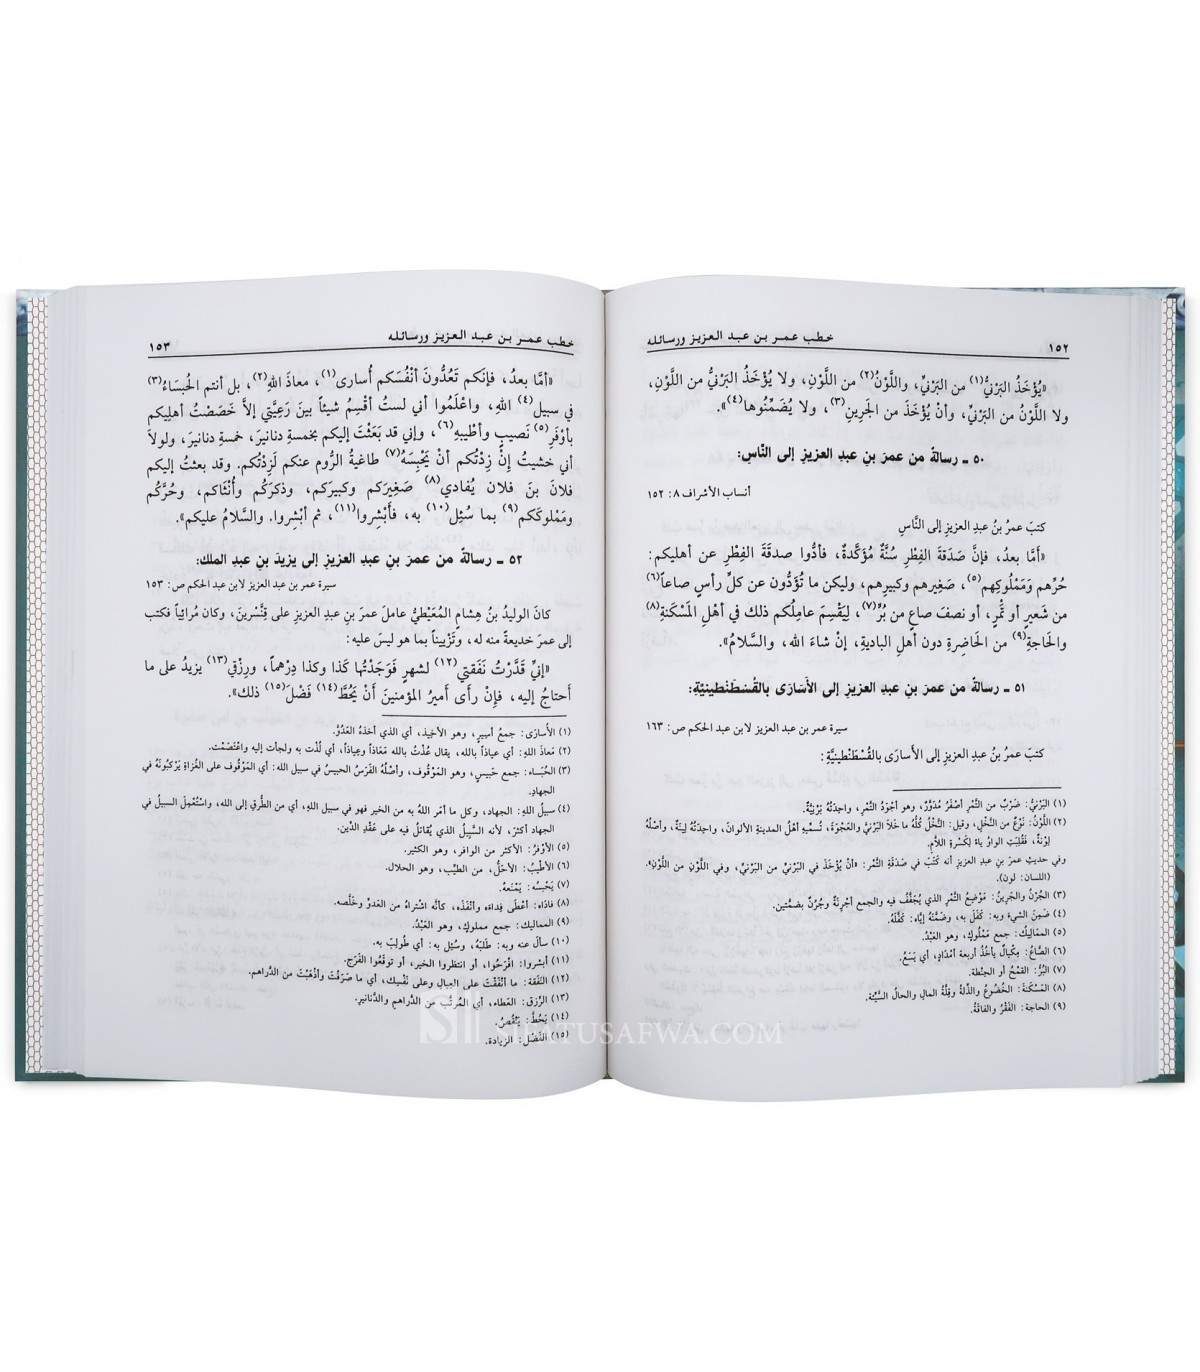 خطب عمر بن عبد العزيز ورسائله
١٥٢
«يُؤْخَذُ البَرْنيُّ(١) من البَرْنيِّ، واللَّوْنُ(٢) من اللَّوْنِ، ولا يُؤْخَذُ البَرْنيُّ من اللَّوْنِ،
ولا اللَّوْنُ من البَرْنيِّ، وأنْ يُؤْخَذَ من الجَرِينِ(٣)، ولا يُضَمِّنُوها(٤)».
٥٠ ـ رسالةٌ من عمرَ بنِ عبدِ العزيزِ إلى النَّاسِ:
أنساب الأشراف ٨: ١٥٢
كتبَ عمرُ بنُ عبدِ العزيزِ إلى النَّاسِ
«أمَّا بعدُ، فإنَّ صَدَقَةَ الفِطْرِ سُنَّةٌ مُؤَكَّدَةٌ، فأدُّوا صدقَةَ الفِطْرِ عن أهليكم:
حُرِّهم وَمَمْلُوكِهم(٥)، صَغِيرِهم وكبيرِهم، وليكن ما تُؤَدُّون عن كلِّ رأسٍ صاعاً(٦)
من شَعيرٍ أو تُمْرٍ، أو نصفَ صاعٍ من بُرٍّ(٧)، لِيَقْسِمَ عامِلُكم ذلك في أهْلِ المَسْكَنةِ(٨)
والحَاجةِ(٩) من الحَاضِرةِ دون أهلِ الباديةِ، إنْ شاءَ الله، والسَّلامُ».
٥١ ـ رسالةٌ من عمرَ بنِ عبدِ العزيزِ إلى الأَسَارَى بالقُسْطَنْطِينيَّةِ:
سيرة عمر بن عبد العزيز لابن عبد الحكم ص: ١٦٣
كتبَ عمرُ بنُ عبدِ العزيزِ إلى الأسارَى بالقُسْطَنْطِينِيَّةِ:
(١) البَرْنيُّ: ضَرْبٌ من التَّمْرِ أصْفَرُ مُدَوَّرٌ، وهو أجْوَدُ التَّمْرِ، واحِدَتُهُ بَرْنِيَّةٌ.
(٢) اللَّوْنُ: نَوْعٌ من النَّخْلِ، وقيل: النَّخْلُ كُلُّهُ ما خَلاَ البَرْنيَّ والعَجْوَةَ، تُسَمِّيهِ أهْلُ المدينةِ الألوانَ، واحِدَتُهُ لِينَةٌ، وأصْلُهُ
لِوْنَةٌ، فَقُلِبَتِ الواوُ ياءً لِكَسْرةِ اللاَّمِ.
وفي حديثِ عمرَ بنِ عبدِ العزيزِ أنه كَتَبَ في صدَقَةِ التَّمْر: «أنْ يُؤْخَذَ في البَرْنيِّ من البَرْنيِّ، وفي اللَّوْنِ من اللَّوْنِ».
(اللسان: لون).
(٣) الجُرْنُ والجَرِينُ: مَوْضِعُ التَّمْرِ الذي يُجَفَّفُ فيه والجمع أجْرِنَةٌ وجُرُنٌ بضمَّتين.
(٤) ضَمِنَ الشيءَ وبه: كَفَلَ به، وضَمَّنَهُ إيَّاه: كَفَّلَهُ.
(٥) المماليكُ: جمع مَمْلُوكٍ، وهو العَبْدُ.
(٦) الصَّاعُ: مِكيالٌ يأخُذُ أربعةَ أمْدَادٍ، أي يَسَعُ.
(٧) البُرُّ: القَمْحُ أو الحِنْطَة.
(٨) المَسْكَنَة: الخُضُوعُ والذِّلَّةُ وقِلَّةُ المالِ والحالُ السَّيِّئة.
(٩) الحاجة: الفَقْرُ والفاقَةُ.
خطب عمر بن عبد العزيز ورسائله
١٥٣
«أمَّا بعدُ، فإنَّكم تَعُدُّونَ أنْفُسَكم أُسارى(١)، معاذَ اللهِ(٢)، بل أنتم الحُبَسَاءُ(٣)
في سبيلِ(٤) اللهِ، واعْلَمُوا أني لستُ أقْسِمُ شيئاً بينَ رَعِيَّتي إلاَّ خَصَصْتُ أهلِيكم
بأوْفَرِ(٥) نَصيبٍ وأطْيبِهِ(٦)، وإني قد بَعَثْتُ إليكم بخمسةِ دنانيرَ، خمسةِ دنانيرَ، ولولاَ
أني خشيتُ إنْ زِدْتُكم أنْ يَحْبِسَهُ(٧) طاغيةُ الرُّوم عنكم لَزِدْتُكم. وقد بعثتُ إليكم
فلانَ بنَ فلان يُفادي(٨) صَغِيرَكم وكبيرَكم، وذكرَكُم وأُنْثَاكم، وحُرَّكُم
ومَمْلوكَكم(٩) بما سُئِلَ(١٠) به، فأَبْشِروا(١١)، ثم أبْشِروا. والسَّلامُ عليكم».
٥٢ ـ رسالةٌ من عمرَ بنِ عبدِ العزيزِ إلى يزيدَ بنِ عبدِ الملك:
سيرة عمر بن عبد العزيز لابن عبد الحكم ص: ١٥٣
كانَ الوليدُ بنُ هِشامٍ المُعَيْطِيُّ عاملَ عمرَ بنِ عبدِ العزيزِ على قِنَّسْرِينَ، وكان مُرائِياً فكتب
إلى عمرَ خديعةً منه له، وتَزْييناً بما هو ليسَ عليه:
«إنِّي قَدَّرْتُ نَفَقتي(١٢) لشهرٍ فَوَجَدْتُها كَذا وكذا دِرْهماً، ورِزْقي(١٣) يزيدُ على ما
أَحتاجُ إليه، فإنْ رأى أميرُ المؤمنينَ أنْ يَحُطَّ(١٤) فَضْلَ(١٥) ذلك».
(١) الأُسارَى: جمعُ أسيرٍ، وهو الأخِيذ، أي الذي أخذَهُ العَدُوُّ.
(٢) مَعاذَ اللهِ: أي عياذاً بالله، يقال عُذْتُ بالله مَعَاذاً وعِياذاً، أي لُذْت به ولجأت إليه واعْتَصَمْت.
(٣) الحُبَسَاء: جمع حَبِيسٍ، وهو المَوْقُوف، وأصْلُهُ الفَرَسُ الحبيسُ في سبيل الله: أي المَوْقُوف على الغُزاةِ يَرْكبُونَهُ في
الجهادِ.
(٤) سبيلُ اللهِ: الجهاد، وكل ما أمَر اللهُ به من الخير فهو في سبيل اللهِ، أي من الطُّرقِ إلى الله، واسْتُعْمِلَ السبيلُ في
الجهادِ أكثرَ، لأنه السَّبيلُ الذي يُقاتَلُ فيه على عَقْدِ الدِّين.
(٥) الأوْفَرُ: الأكثر من الوافر، وهو الكثير.
(٦) الأطْيَبُ: الأحَلُّ، من الطَّيِّب، وهو الحلال.
(٧) يَحْبِسُه: يَمْنَعهُ.
(٨) فاداه: أعْطَى فِداءَه وأنْقذَه، كأنَّه اشتراهُ من العَدوِّ وخَلَّصه.
(٩) المماليك: جمع مملوكٍ، وهو العَبْدُ.
(١٠) سألَ عنه وبه: طَلَبَهُ، وسُئِلَ به: أي طُولِبَ به.
(١١) أبْشِروا: افْرَحُوا، أو انتظروا الخير، أو توقَّعُوا الفَرَج.
(١٢) النَّفَقة: ما أنْفَقْتَ على العِيالِ وعلى نَفْسِك، أي ما صَرَفْتَ وأذْهَبْتَ من الدَّراهم.
(١٣) الرِّزق: العَطاء، أي المُرتَّب من الدَّراهمِ والدَّنانيرِ.
(١٤) يَحُطُّ: يُنْقِصُ.
(١٥) الفَضْلُ: الزيادة.
SIFATUSAFWA.COM